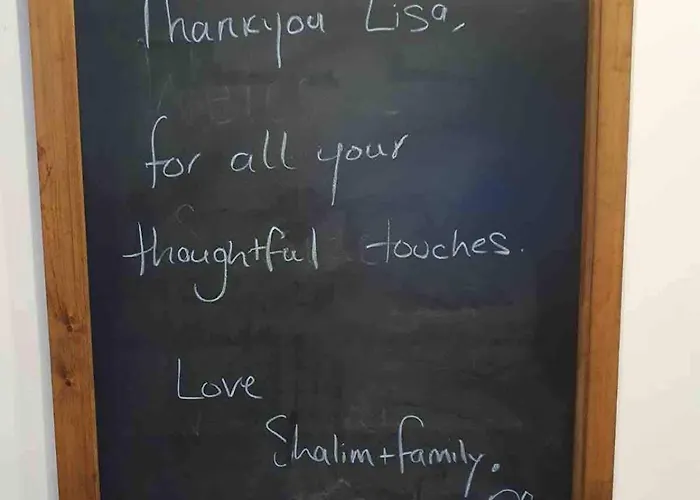 Thankyou Lisa,
for all your
thoughtful touches.
Love
Shalim + family.